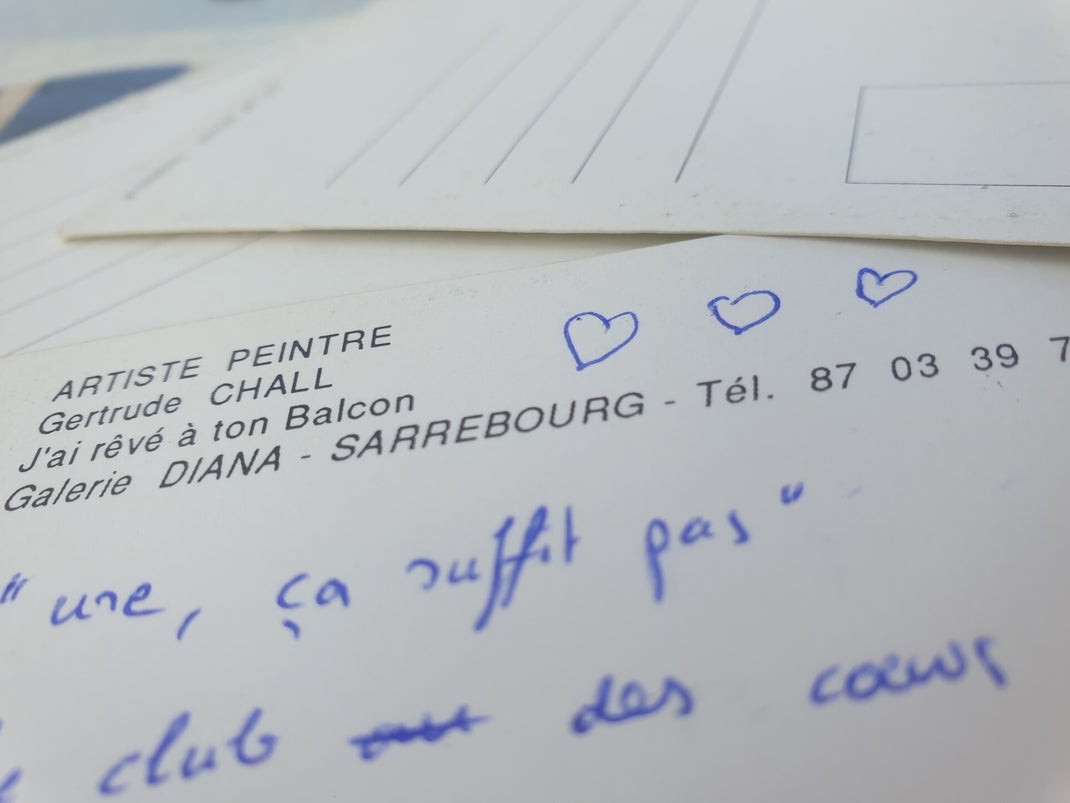 ARTISTE PEINTRE
Gertrude CHALL
J'ai rêvé à ton Balcon
Galerie DIANA - SARREBOURG - Tél. 87 03 39 7
"une, ça suffit pas"
club des cœurs